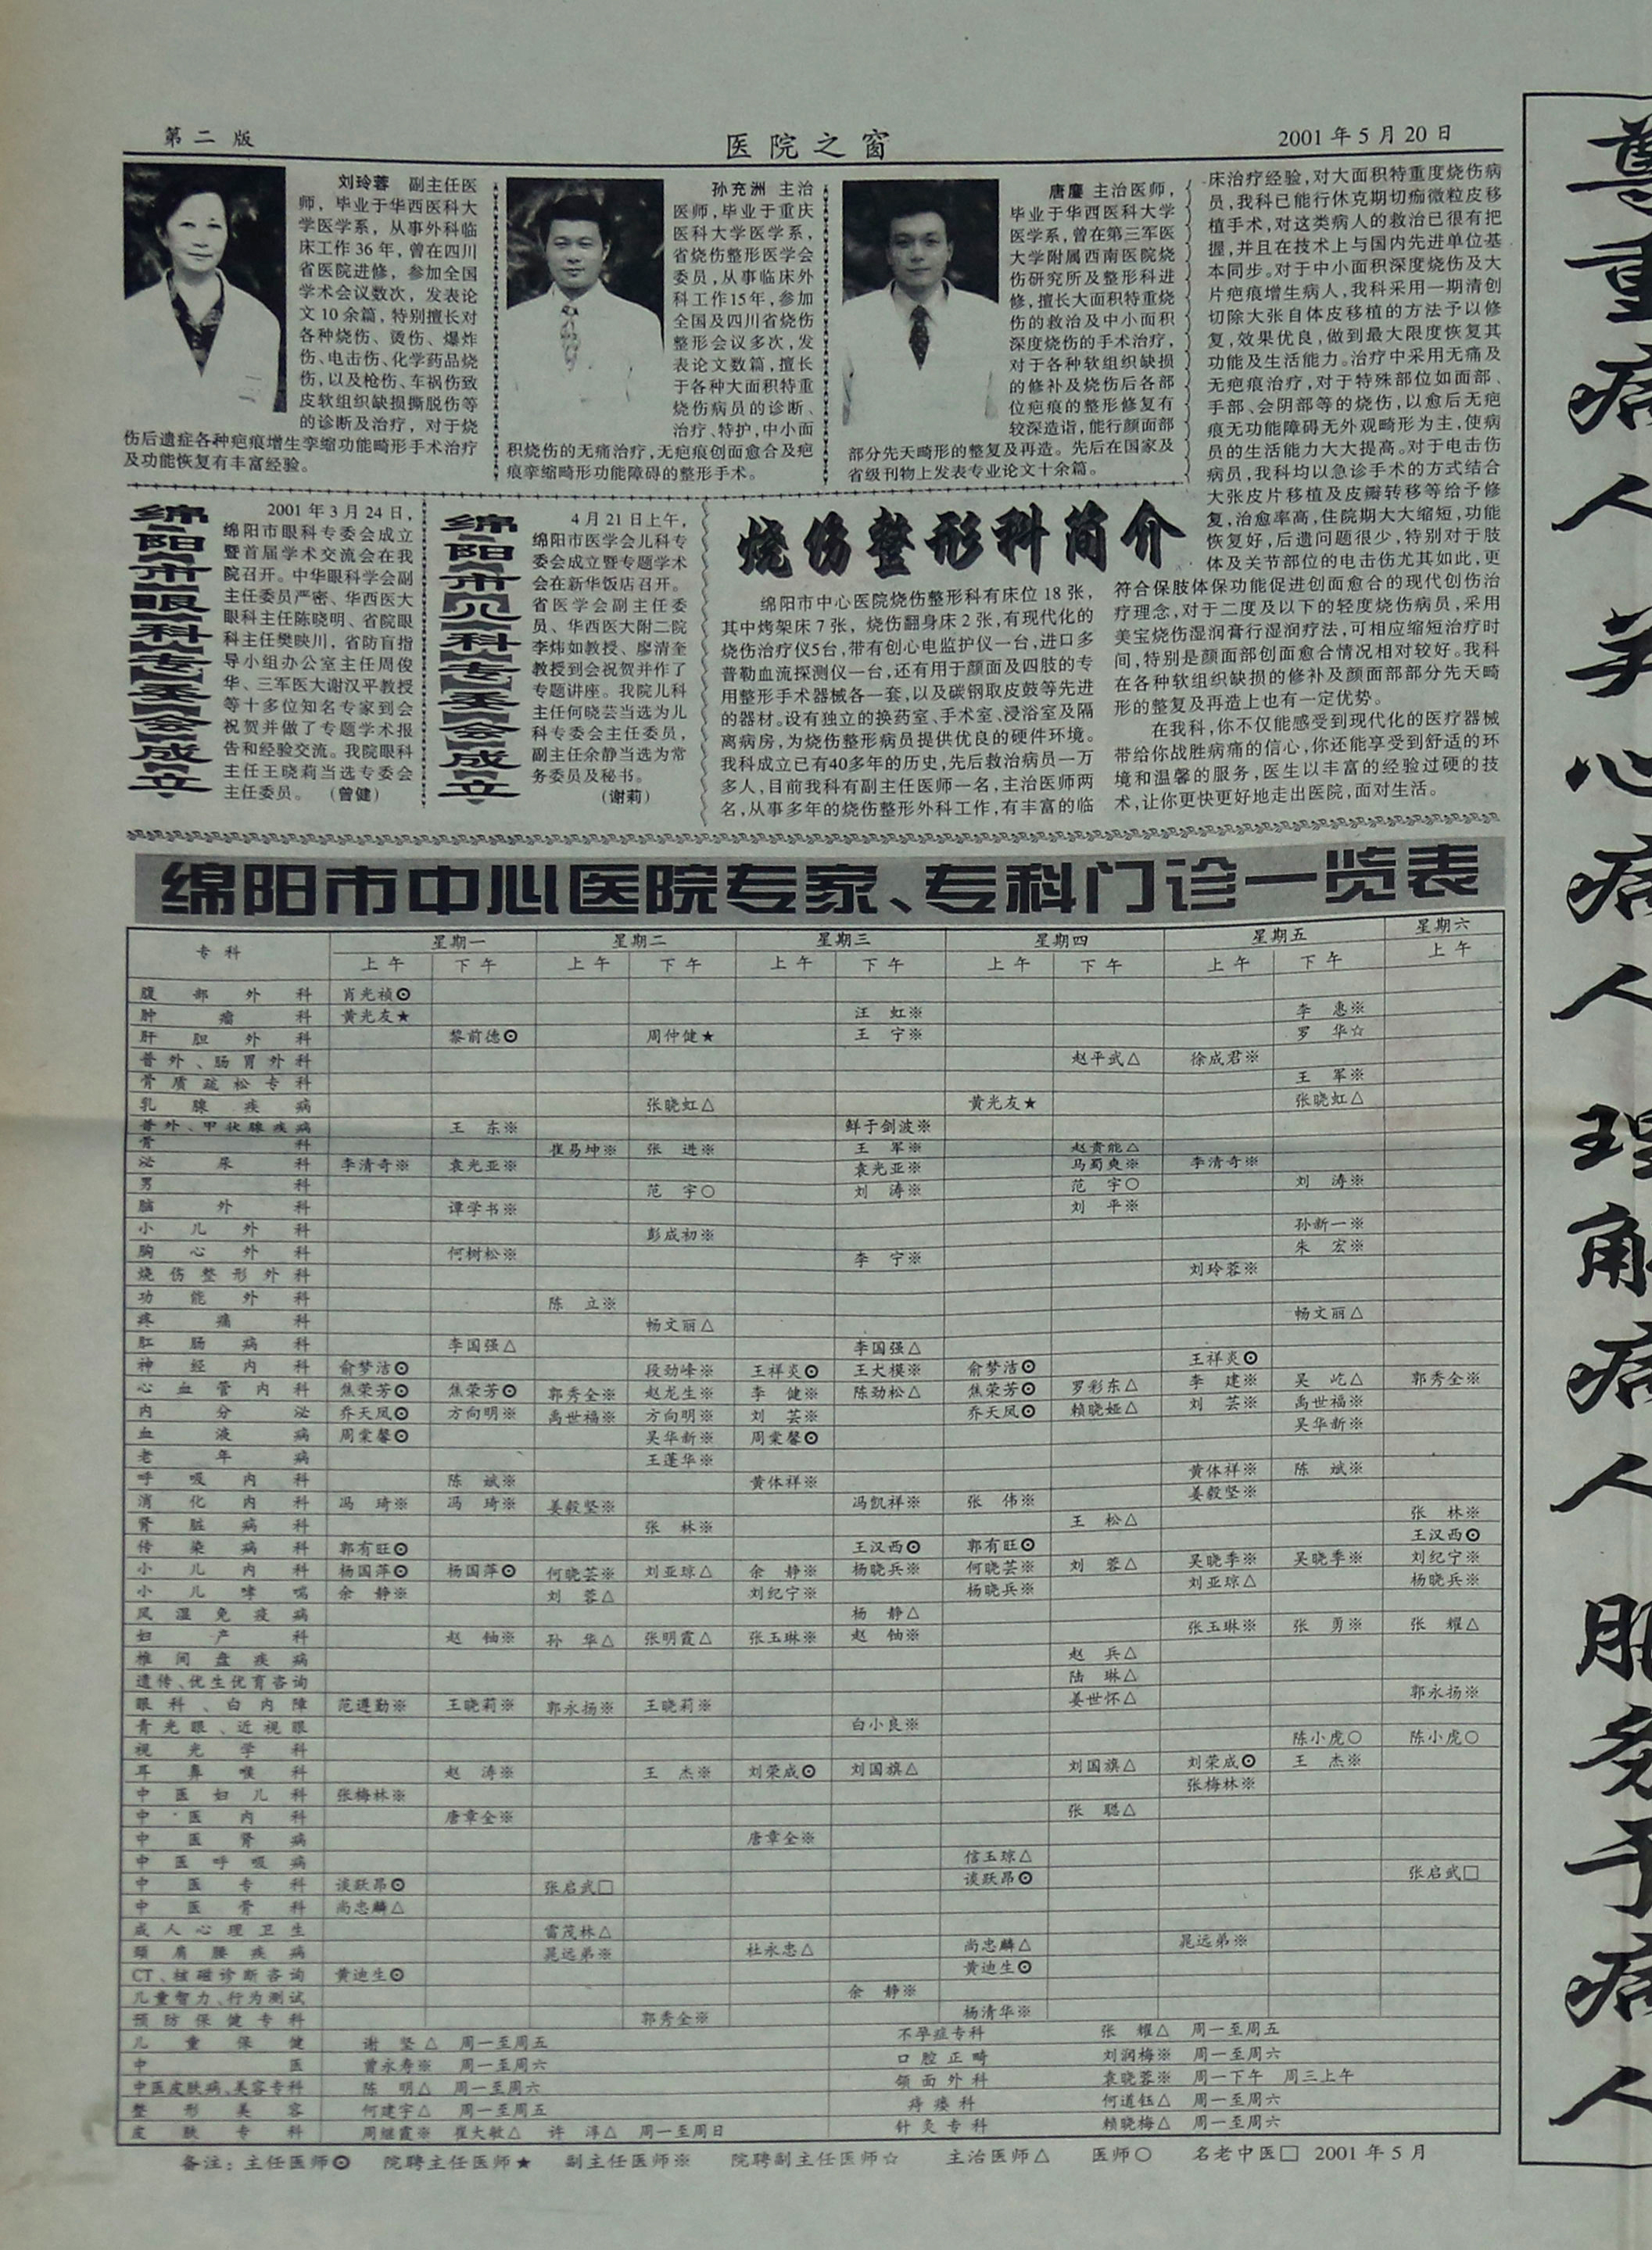 第二版
医院之窗
2001年5月20日
刘玲蓉 副主任医
师，毕业于华西医科大
学医学系，从事外科临
床工作36年，曾在四川
省医院进修，参加全国
学术会议数次，发表论
文10余篇，特别擅长对
各种烧伤、烫伤、爆炸
伤、电击伤、化学药品烧
伤，以及枪伤、车祸伤致
皮软组织缺损撕脱伤等
的诊断及治疗，对于烧
伤后遗症各种疤痕增生挛缩功能畸形手术治疗
及功能恢复有丰富经验。
孙充洲 主治
医师，毕业于重庆
医科大学医学系，
省烧伤整形医学会
委员，从事临床外
科工作15年，参加
全国及四川省烧伤
整形会议多次，发
表论文数篇，擅长
于各种大面积特重
烧伤病员的诊断、
治疗、特护，中小面
积烧伤的无痛治疗，无疤痕创面愈合及疤
痕挛缩畸形功能障碍的整形手术。
唐鏖 主治医师，
毕业于华西医科大学
医学系，曾在第三军医
大学附属西南医院烧
伤研究所及整形科进
修，擅长大面积特重烧
伤的救治及中小面积
深度烧伤的手术治疗，
对于各种软组织缺损
的修补及烧伤后各部
位疤痕的整形修复有
较深造诣，能行颜面部
部分先天畸形的整复及再造。先后在国家及
省级刊物上发表专业论文十余篇。
绵阳市眼科专委会成立
2001年3月24日，
绵阳市眼科专委会成立
暨首届学术交流会在我
院召开。中华眼科学会副
主任委员严密、华西医大
眼科主任陈晓明、省院眼
科主任樊映川，省防盲指
导小组办公室主任周俊
华、三军医大谢汉平教授
等十多位知名专家到会
祝贺并做了专题学术报
告和经验交流。我院眼科
主任王晓莉当选专委会
主任委员。（曾健）
绵阳市儿科专委会成立
4月21日上午，
绵阳市医学会儿科专
委会成立暨专题学术
会在新华饭店召开。
省医学会副主任委
员、华西医大附二院
李炜如教授、廖清奎
教授到会祝贺并作了
专题讲座。我院儿科
主任何晓芸当选为儿
科专委会主任委员，
副主任余静当选为常
务委员及秘书。
（谢莉）
烧伤整形科简介
绵阳市中心医院烧伤整形科有床位18张，
其中烤架床7张，烧伤翻身床2张，有现代化的
烧伤治疗仪5台，带有创心电监护仪一台，进口多
普勒血流探测仪一台，还有用于颜面及四肢的专
用整形手术器械各一套，以及碳钢取皮鼓等先进
的器材。设有独立的换药室、手术室、浸浴室及隔
离病房，为烧伤整形病员提供优良的硬件环境。
我科成立已有40多年的历史，先后救治病员一万
多人，目前我科有副主任医师一名，主治医师两
名，从事多年的烧伤整形外科工作，有丰富的临
床治疗经验，对大面积特重度烧伤病
员，我科已能行休克期切痂微粒皮移
植手术，对这类病人的救治已很有把
握，并且在技术上与国内先进单位基
本同步。对于中小面积深度烧伤及大
片疤痕增生病人，我科采用一期清创
切除大张自体皮移植的方法予以修
复，效果优良，做到最大限度恢复其
功能及生活能力。治疗中采用无痛及
无疤痕治疗，对于特殊部位如面部、
手部、会阴部等的烧伤，以愈后无疤
痕无功能障碍无外观畸形为主，使病
员的生活能力大大提高。对于电击伤
病员，我科均以急诊手术的方式结合
大张皮片移植及皮瓣转移等给予修
复，治愈率高，住院期大大缩短，功能
恢复好，后遗问题很少，特别对于肢
体及关节部位的电击伤尤其如此，更
符合保肢体保功能促进创面愈合的现代创伤治
疗理念，对于二度及以下的轻度烧伤病员，采用
美宝烧伤湿润膏行湿润疗法，可相应缩短治疗时
间，特别是颜面部创面愈合情况相对较好。我科
在各种软组织缺损的修补及颜面部部分先天畸
形的整复及再造上也有一定优势。
在我科，你不仅能感受到现代化的医疗器械
带给你战胜病痛的信心，你还能享受到舒适的环
境和温馨的服务，医生以丰富的经验过硬的技
术，让你更快更好地走出医院，面对生活。
绵阳市中心医院专家、专科门诊一览表
专科 星期一 星期二 星期三 星期四 星期五 星期六
上午 下午 上午 下午 上午 下午 上午 下午 上午 下午 上午
腹部外科 肖光祯⊙
肿瘤科 黄光友★ 汪虹※ 李惠※
肝胆外科 黎前德⊙ 周仲健★ 王宁※ 罗华☆
普外、肠胃外科 赵平武△ 徐成君※
骨质疏松专科 王军※
乳腺疾病 张晓虹△ 黄光友★ 张晓虹△
普外、甲状腺疾病 王东※ 鲜于剑波※
骨科 崔易坤※ 张进※ 王军※ 赵贵能△
泌尿科 李清奇※ 袁光亚※ 袁光亚※ 马蜀爽※ 李清奇※
男科 范宇○ 刘涛※ 范宇○ 刘涛※
脑外科 谭学书※ 刘平※
小儿外科 彭成初※ 孙新一※
胸心外科 何树松※ 李宁※ 朱宏※
烧伤整形外科 刘玲蓉※
功能外科 陈立※
疼痛科 畅文丽△ 畅文丽△
肛肠病科 李国强△ 李国强△
神经内科 俞梦洁⊙ 段劲峰※ 王祥炎⊙ 王大模※ 俞梦洁⊙ 王祥炎⊙
心血管内科 焦荣芳⊙ 焦荣芳⊙ 郭秀全※ 赵龙生※ 李健※ 陈劲松△ 焦荣芳⊙ 罗彩东△ 李建※ 吴屹△ 郭秀全※
内分泌 乔天凤⊙ 方向明※ 禹世福※ 方向明※ 刘芸※ 乔天凤⊙ 赖晓娅△ 刘芸※ 禹世福※
血液病 周棠馨⊙ 吴华新※ 周棠馨⊙ 吴华新※
老年病 王蓬华※
呼吸内科 陈斌※ 黄体祥※ 黄体祥※ 陈斌※
消化内科 冯琦※ 冯琦※ 姜毅坚※ 冯凯祥※ 张伟※ 姜毅坚※
肾脏病科 张林※ 王松△ 张林※
传染病科 郭有旺⊙ 王汉西⊙ 郭有旺⊙ 王汉西⊙
小儿内科 杨国萍⊙ 杨国萍⊙ 何晓芸※ 刘亚琼△ 余静※ 杨晓兵※ 何晓芸※ 刘蓉△ 吴晓季※ 吴晓季※ 刘纪宁※
小儿哮喘 余静※ 刘蓉△ 刘纪宁※ 杨晓兵※ 刘亚琼△ 杨晓兵※
风湿免疫病 杨静△
妇产科 赵铀※ 孙华△ 张明霞△ 张玉琳※ 赵铀※ 张玉琳※ 张勇※ 张耀△
椎间盘疾病 赵兵△
遗传、优生优育咨询 陆琳△
眼科、白内障 范遵勤※ 王晓莉※ 郭永扬※ 王晓莉※ 姜世怀△ 郭永扬※
青光眼、近视眼 白小良※
视光学科 陈小虎○ 陈小虎○
耳鼻喉科 赵涛※ 王杰※ 刘荣成⊙ 刘国旗△ 刘国旗△ 刘荣成⊙ 王杰※
中医妇儿科 张梅林※ 张梅林※
中医内科 唐章全※ 张聪△
中医肾病 唐章全※
中医呼吸病 信玉琼△
中医专科 谈跃昂⊙ 张启武□ 谈跃昂⊙ 张启武□
中医骨科 尚忠麟△
成人心理卫生 雷茂林△
颈肩腰疾病 晁远弟※ 杜永忠△ 尚忠麟△ 晁远弟※
CT、核磁诊断咨询 黄迪生⊙ 黄迪生⊙
儿童智力、行为测试 余静※
预防保健专科 郭秀全※ 杨清华※
儿童保健 谢坚△ 周一至周五 不孕症专科 张耀△ 周一至周五
中医 曾永寿※ 周一至周六 口腔正畸 刘润梅※ 周一至周六
中医皮肤病、美容专科 陈明△ 周一至周六 颌面外科 袁晓蓉※ 周一下午 周三上午
整形美容 何建宇△ 周一至周五 痔瘘科 何道钰△ 周一至周六
皮肤专科 周继霞※ 崔大敏△ 许淳△ 周一至周日 针灸专科 赖晓梅△ 周一至周六
备注：主任医师⊙ 院聘主任医师★ 副主任医师※ 院聘副主任医师☆ 主治医师△ 医师○ 名老中医□ 2001年5月
尊重病人 关心病人 理解病人 服务于病人